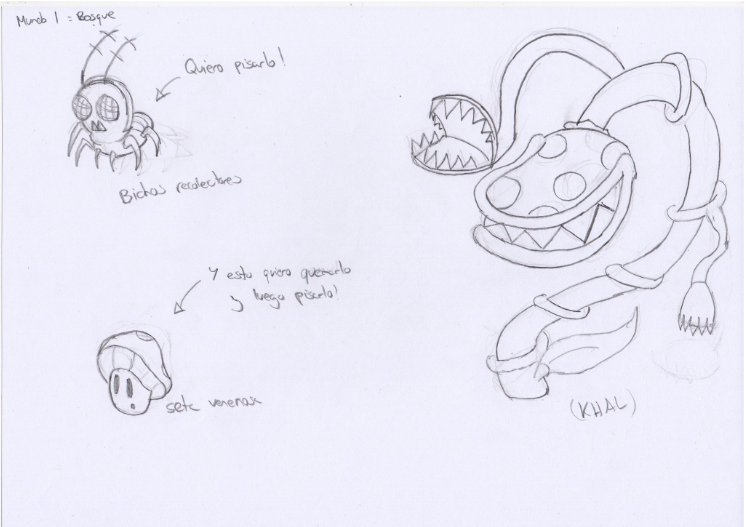 Mundo 1 : Bosque
Quiero pisarlo!
Bichos recolectores
Y esto quiero quemarlo
y luego pisarlo!
seta venenosa
(KHAL)